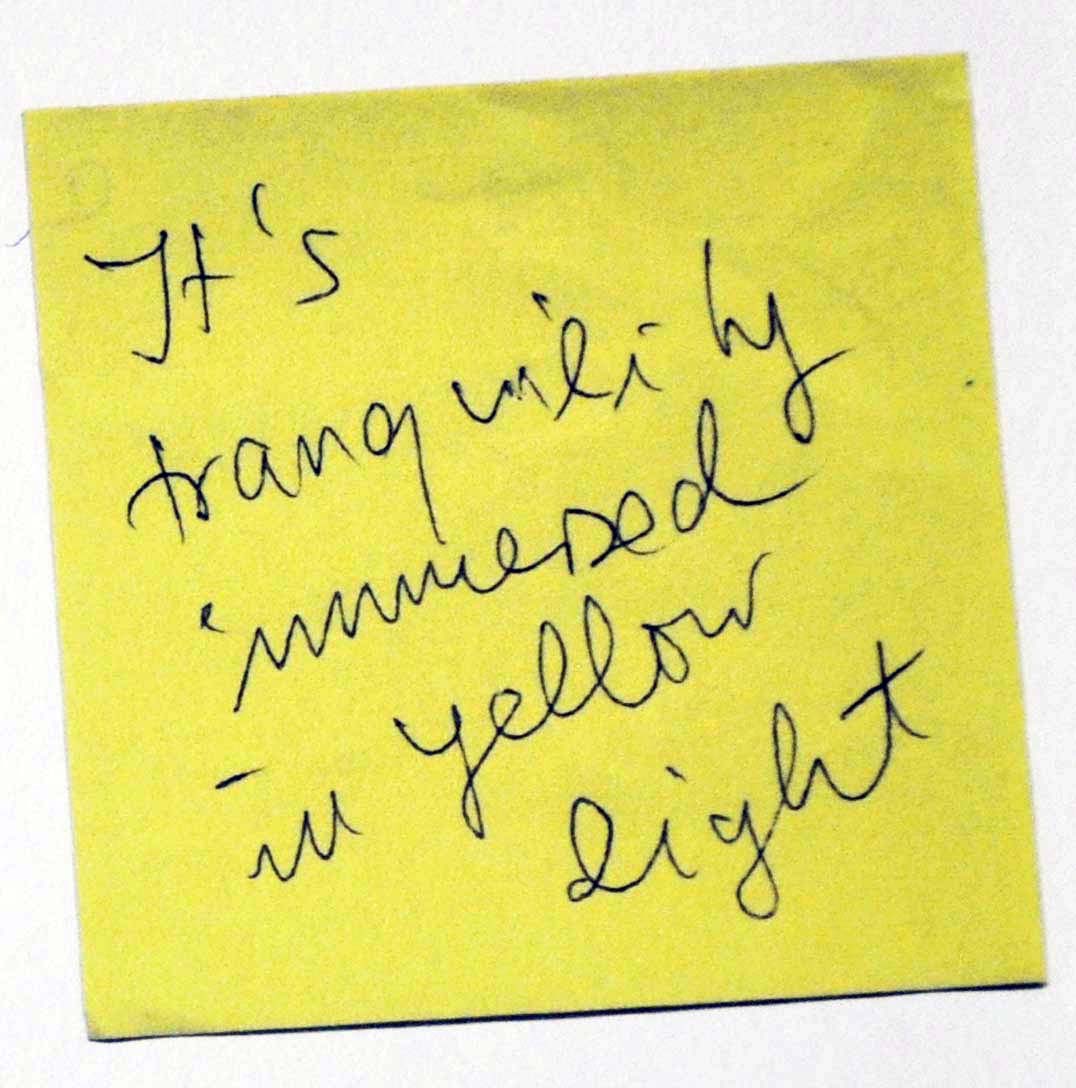 It's
tranquility
immersed
in yellow
light